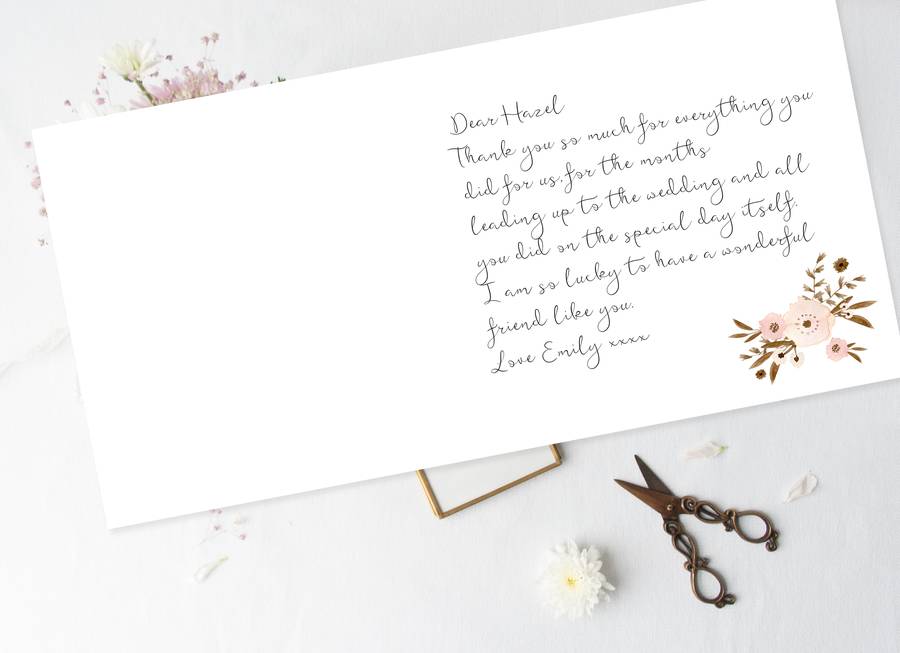 Dear Hazel
Thank you so much for everything you
did for us, for the months
leading up to the wedding and all
you did on the special day itself.
I am so lucky to have a wonderful
friend like you.
Love Emily xxxx